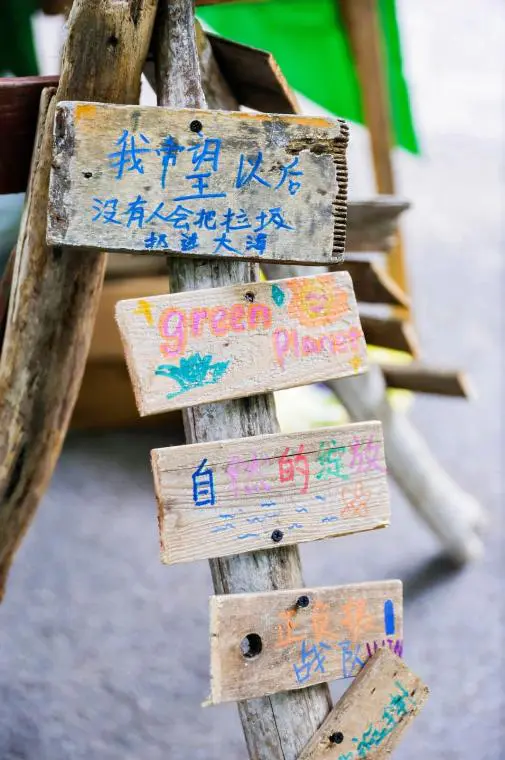 我希望以后
没有人会把垃圾
扔进大海
green
Planet
自然的绽放
战队